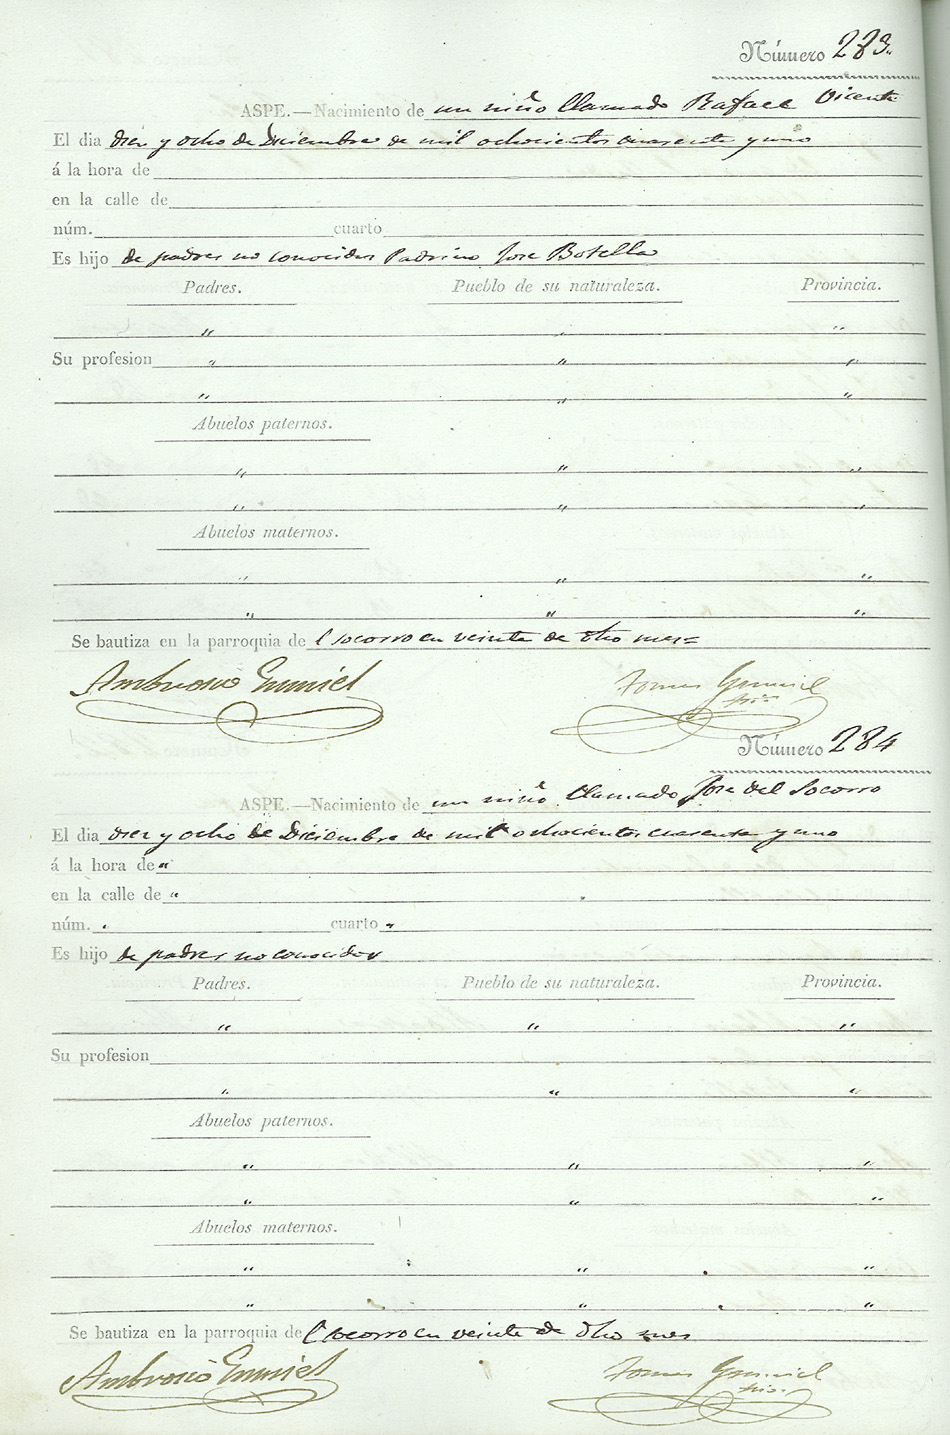 Número 283.
ASPE.—Nacimiento de un niño llamado Rafael Vicente
El dia diez y ocho de Diciembre de mil ochocientos cuarenta y uno
á la hora de
en la calle de
núm. cuarto
Es hijo de padres no conocidos Padrino Jose Botella
Padres. Pueblo de su naturaleza. Provincia.
" " "
Su profesion " " "
" " "
Abuelos paternos.
" " "
" " "
Abuelos maternos.
" " "
" " "
Se bautiza en la parroquia de l Socorro en veinte de dho mes=
Ambrosio Tomas
Número 284
ASPE.—Nacimiento de un niño llamado Jose del Socorro
El dia diez y ocho de Diciembre de mil ochocientos cuarenta y uno
á la hora de "
en la calle de "
núm. " cuarto "
Es hijo de padres no conocidos
Padres. Pueblo de su naturaleza. Provincia.
" " "
Su profesion
" " "
Abuelos paternos.
" " "
" " "
Abuelos maternos.
" " "
" " "
Se bautiza en la parroquia de l Socorro en veinte de dho mes
Ambrosio Tomas